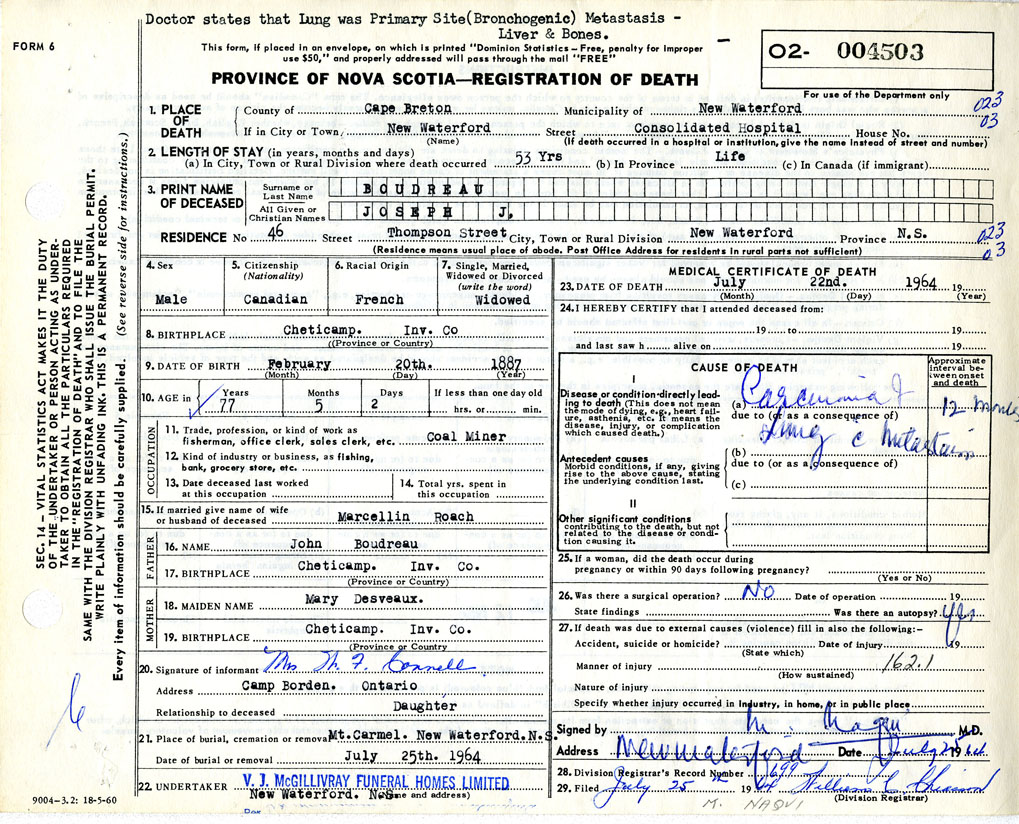 Doctor states that Lung was Primary Site(Bronchogenic) Metastasis -
Liver & Bones.
FORM 6
This form, if placed in an envelope, on which is printed "Dominion Statistics – Free, penalty for improper
use $50," and properly addressed will pass through the mail "FREE"
O2- 004503
PROVINCE OF NOVA SCOTIA—REGISTRATION OF DEATH
For use of the Department only
1. PLACE OF DEATH
County of Cape Breton Municipality of New Waterford 023
If in City or Town, New Waterford Street Consolidated Hospital House No. 03
(Name) (If death occurred in a hospital or institution, give the name instead of street and number)
2. LENGTH OF STAY (in years, months and days)
(a) In City, Town or Rural Division where death occurred 53 Yrs (b) In Province Life (c) In Canada (if immigrant)
3. PRINT NAME OF DECEASED
Surname or Last Name BOUDREAU
All Given or Christian Names JOSEPH J.
RESIDENCE No 46 Street Thompson Street City, Town or Rural Division New Waterford Province N.S. 023
(Residence means usual place of abode. Post Office Address for residents in rural parts not sufficient) 03
4. Sex Male
5. Citizenship (Nationality) Canadian
6. Racial Origin French
7. Single, Married, Widowed or Divorced (write the word) Widowed
8. BIRTHPLACE Cheticamp. Inv. Co
((Province or Country)
9. DATE OF BIRTH February 20th. 1887
(Month) (Day) (Year)
10. AGE in Years 77 Months 5 Days 2 If less than one day old hrs. or min.
OCCUPATION
11. Trade, profession, or kind of work as
fisherman, office clerk, sales clerk, etc. Coal Miner
12. Kind of industry or business, as fishing,
bank, grocery store, etc.
13. Date deceased last worked
at this occupation
14. Total yrs. spent in
this occupation
15. If married give name of wife
or husband of deceased Marcellin Roach
FATHER
16. NAME John Boudreau
17. BIRTHPLACE Cheticamp. Inv. Co.
(Province or Country)
MOTHER
18. MAIDEN NAME Mary Desveaux.
19. BIRTHPLACE Cheticamp. Inv. Co.
(Province or Country
20. Signature of informant Mrs M. F. Connell
Address Camp Borden. Ontario
Relationship to deceased Daughter
21. Place of burial, cremation or removal Mt.Carmel. New Waterford.N.S.
Date of burial or removal July 25th. 1964
22. UNDERTAKER V. J. McGILLIVRAY FUNERAL HOMES LIMITED
New Waterford. N.S. (Name and address)
Per
9004–3.2: 18-5-60
MEDICAL CERTIFICATE OF DEATH
23. DATE OF DEATH July 22nd. 1964 19
(Month) (Day) (Year)
24. I HEREBY CERTIFY that I attended deceased from:
19 to 19
and last saw h alive on 19
CAUSE OF DEATH
Approximate interval between onset and death
I
Disease or condition directly leading to death (This does not mean the mode of dying, e.g., heart failure, asthenia, etc. It means the disease, injury, or complication which caused death.)
(a) Carcinoma of 12 months
due to (or as a consequence of)
Lung c Metastasis
Antecedent causes
Morbid conditions, if any, giving rise to the above cause, stating the underlying condition last.
(b)
due to (or as a consequence of)
(c)
II
Other significant conditions
contributing to the death, but not related to the disease or condition causing it.
25. If a woman, did the death occur during
pregnancy or within 90 days following pregnancy?
(Yes or No)
26. Was there a surgical operation? No Date of operation 19
State findings Was there an autopsy? Yes
27. If death was due to external causes (violence) fill in also the following:–
Accident, suicide or homicide? Date of injury 19
(State which)
Manner of injury 162.1
(How sustained)
Nature of injury
Specify whether injury occurred in Industry, in home, or in public place
Signed by M. Naqui M.D.
Address New Waterford Date July 25 1964
28. Division Registrar's Record Number 1699
29. Filed July 25th 1964 William C Chiasson
(Division Registrar)
M. NAQVI
SEC. 14 – VITAL STATISTICS ACT MAKES IT THE DUTY
OF THE UNDERTAKER OR PERSON ACTING AS UNDER-
TAKER TO OBTAIN ALL THE PARTICULARS REQUIRED
IN THE "REGISTRATION OF DEATH" AND TO FILE THE
SAME WITH THE DIVISION REGISTRAR WHO SHALL ISSUE THE BURIAL PERMIT.
WRITE PLAINLY WITH UNFADING INK. THIS IS A PERMANENT RECORD.
Every item of information should be carefully supplied. (See reverse side for instructions.)